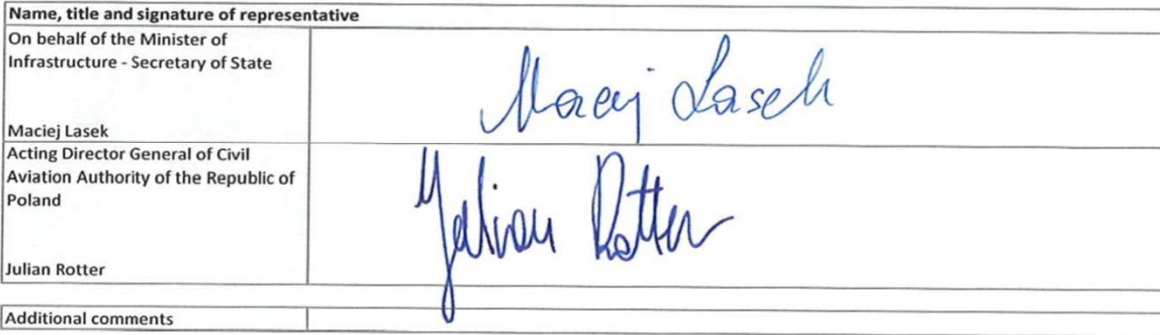 Name, title and signature of representative
On behalf of the Minister of
Infrastructure - Secretary of State
Maciej Lasek
Maciej Lasek
Acting Director General of Civil
Aviation Authority of the Republic of
Poland
Julian Rotter
Julian Rotter
Additional comments